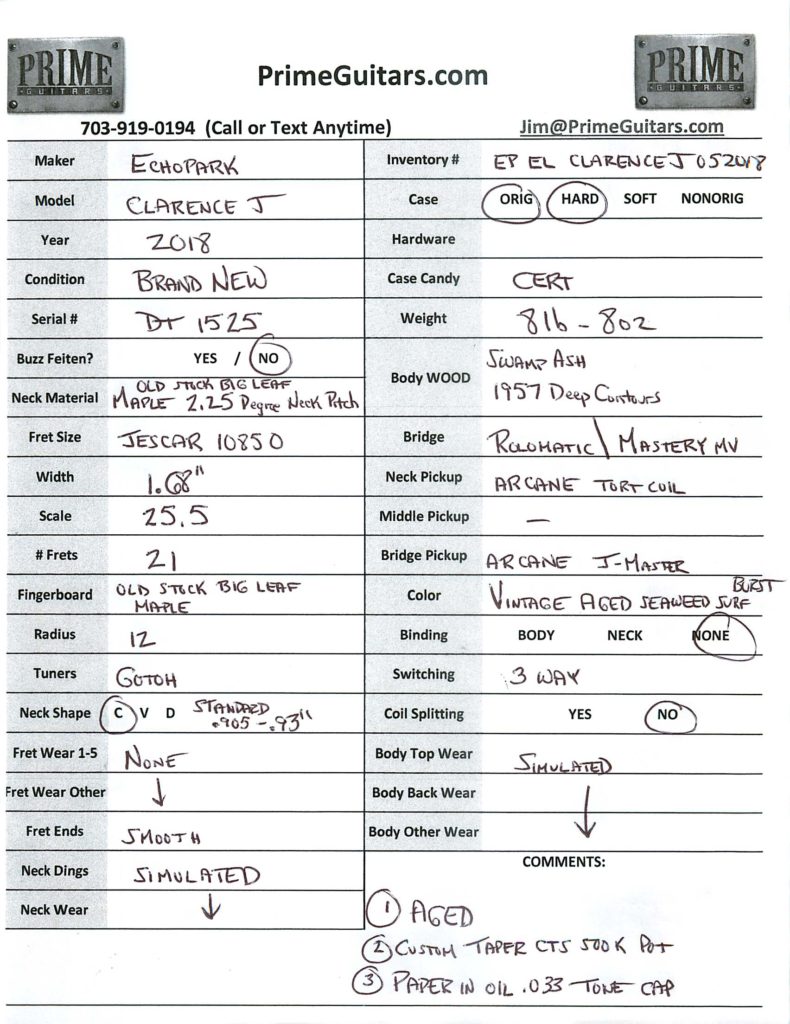 PRIME
GUITARS
PrimeGuitars.com
PRIME
GUITARS
703-919-0194 (Call or Text Anytime)
Jim@PrimeGuitars.com
Maker ECHOPARK
Model CLARENCE J
Year 2018
Condition BRAND NEW
Serial # DT 1525
Buzz Feiten? YES / NO
Neck Material OLD STOCK BIG LEAF
MAPLE 2.25 Degree Neck Pitch
Fret Size JESCAR 10850
Width 1.68"
Scale 25.5
# Frets 21
Fingerboard OLD STOCK BIG LEAF
MAPLE
Radius 12
Tuners GOTOH
Neck Shape C V D STANDARD
.905 - .93"
Fret Wear 1-5 NONE
Fret Wear Other ↓
Fret Ends SMOOTH
Neck Dings SIMULATED
Neck Wear ↓
Inventory # EP EL CLARENCE J 052018
Case ORIG HARD SOFT NONORIG
Hardware
Case Candy CERT
Weight 8lb - 8oz
Body WOOD SWAMP ASH
1957 Deep Contours
Bridge ROLOMATIC \ MASTERY MV
Neck Pickup ARCANE TORT COIL
Middle Pickup —
Bridge Pickup ARCANE J-MASTER
Color VINTAGE AGED SEAWEED SURF BURST
Binding BODY NECK NONE
Switching 3 WAY
Coil Splitting YES NO
Body Top Wear SIMULATED
Body Back Wear ↓
Body Other Wear
COMMENTS:
1 AGED
2 CUSTOM TAPER CTS 500K POT
3 PAPER IN OIL .033 TONE CAP